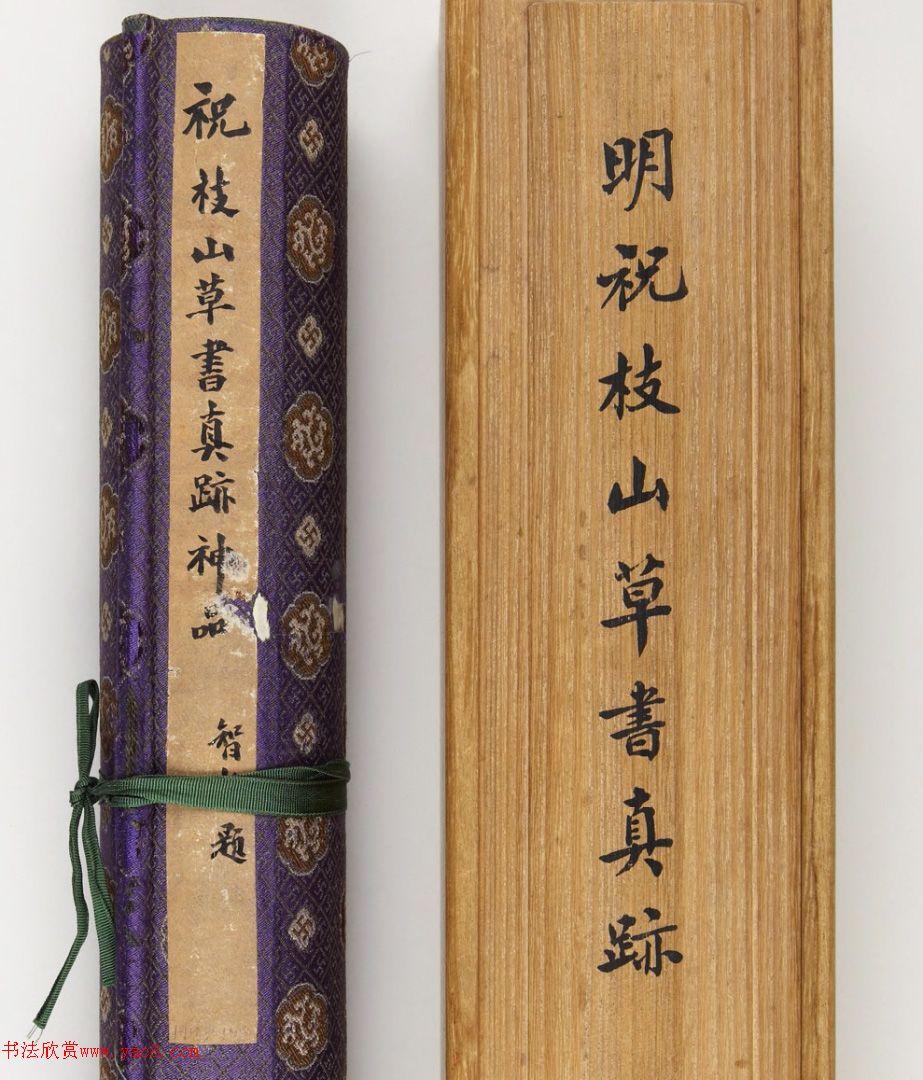 明祝枝山草書真跡
祝枝山草書真跡神品
智 題
书法欣赏www.yac8.com